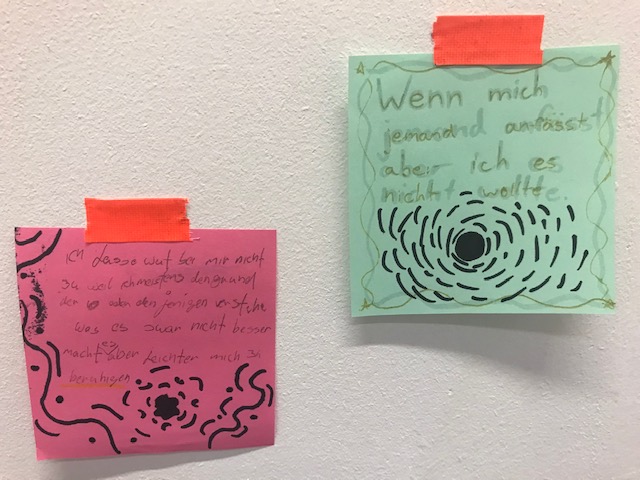 Wenn mich
jemand anfässt
aber ich es
nicht wollte.
Ich lasse wut bei mir nicht
zu weil ich meistens den grund
der oder den jenigen verstehe
was es zwar nicht besser
macht es aber leichter mich zu
beruhigen